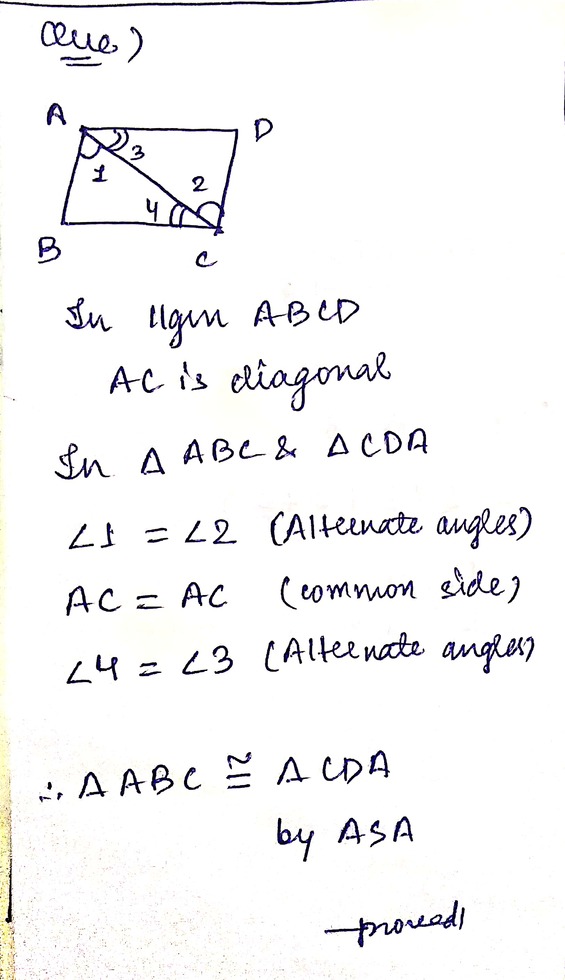 Que)
A
D
3
1
2
4
B
C
In ||gm ABCD
AC is diagonal
In Δ ABC & Δ CDA
∠1 = ∠2 (Alternate angles)
AC = AC (common side)
∠4 = ∠3 (Alternate angles)
∴ Δ ABC ≅ Δ CDA
by ASA
proved